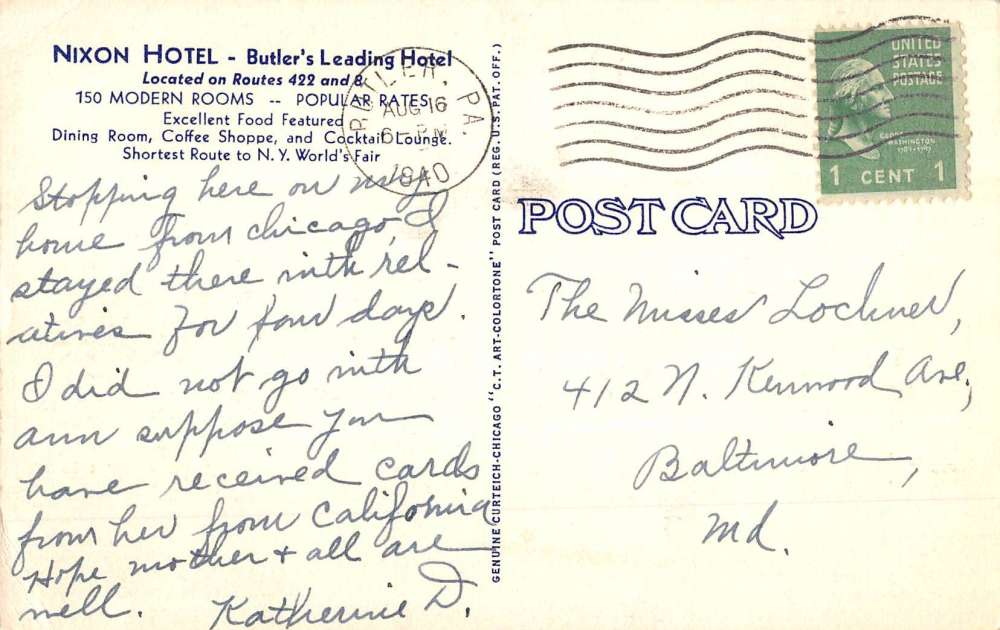 NIXON HOTEL - Butler's Leading Hotel
Located on Routes 422 and 8
150 MODERN ROOMS -- POPULAR RATES
Excellent Food Featured
Dining Room, Coffee Shoppe, and Cocktail Lounge.
Shortest Route to N.Y. World's Fair
BUTLER, PA.
AUG 16
6 - PM
1940
UNITED
STATES
POSTAGE
GEORGE
WASHINGTON
1789-1797
1 CENT 1
POST CARD
GENUINE CURTEICH-CHICAGO "C.T. ART-COLORTONE" POST CARD (REG. U.S. PAT. OFF.)
Stopping here on way
home from Chicago, I
stayed there with rel-
atives for four days.
I did not go with
Ann suppose you
have received cards
from her from California
Hope mother + all are
well. Katherine D.
The Misses Lochner,
412 N. Kenwood Ave,
Baltimore,
Md.